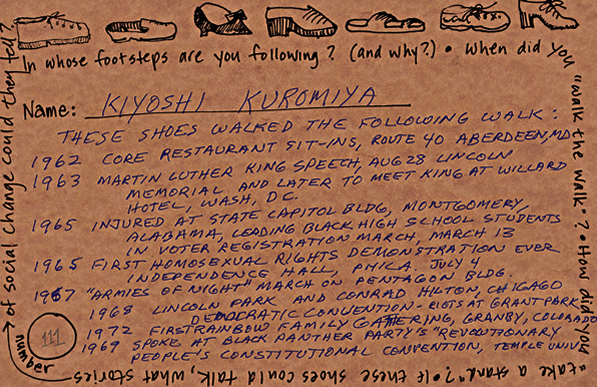 In whose footsteps are you following? (and why?) • When did you
"walk the walk"? • How did you
"take a stand"? • If these shoes could talk, what stories
of social change could they tell?
Name: KIYOSHI KUROMIYA
THESE SHOES WALKED THE FOLLOWING WALK:
1962 CORE RESTAURANT SIT-INS, ROUTE 40 ABERDEEN, MD.
1963 MARTIN LUTHER KING SPEECH, AUG 28 LINCOLN
MEMORIAL AND LATER TO MEET KING AT WILLARD
HOTEL, WASH, D.C.
1965 INJURED AT STATE CAPITOL BLDG, MONTGOMERY,
ALABAMA, LEADING BLACK HIGH SCHOOL STUDENTS
IN VOTER REGISTRATION MARCH, MARCH 13
1965 FIRST HOMOSEXUAL RIGHTS DEMONSTRATION EVER
INDEPENDENCE HALL, PHILA. JULY 4
1967 "ARMIES OF NIGHT" MARCH ON PENTAGON BLDG.
1968 LINCOLN PARK AND CONRAD HILTON, CHICAGO
DEMOCRATIC CONVENTION - RIOTS AT GRANT PARK
1972 FIRST RAINBOW FAMILY GATHERING, GRANBY, COLORADO
1969 SPOKE AT BLACK PANTHER PARTY'S "REVOLUTIONARY
PEOPLE'S CONSTITUTIONAL CONVENTION, TEMPLE UNIV.
111
number